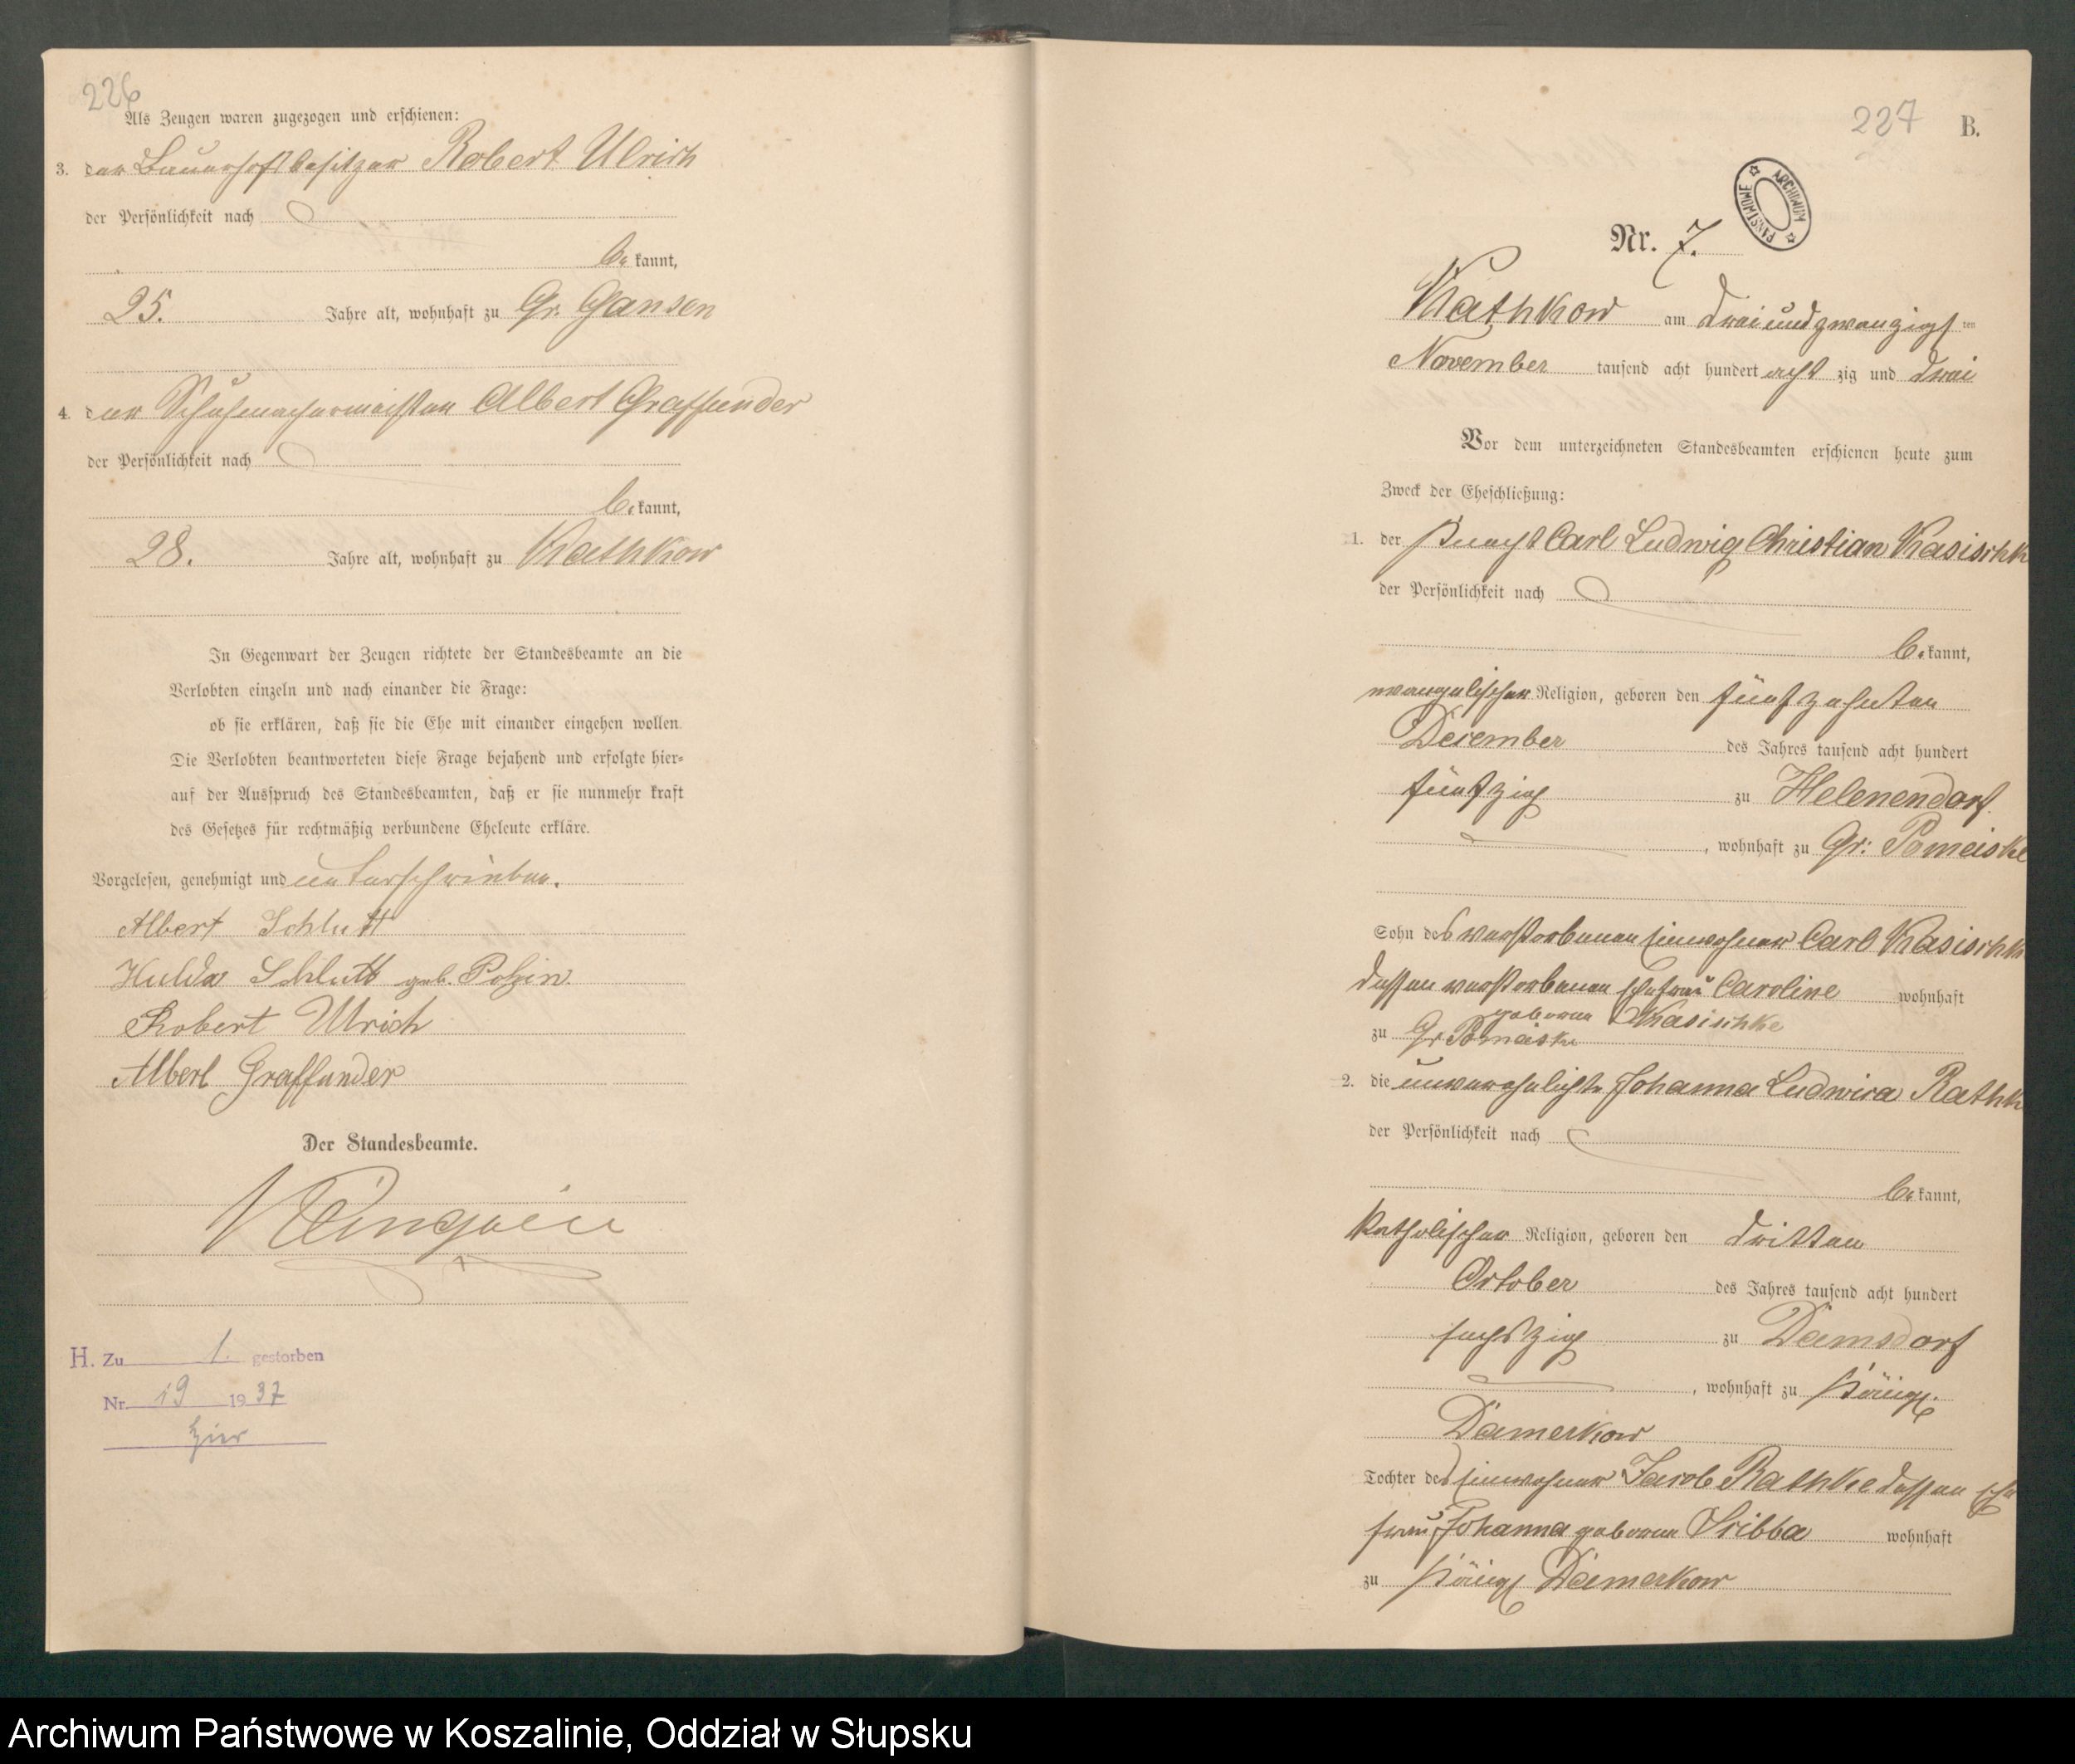 226
Als Zeugen waren zugezogen und erschienen:
3. der Bauerhofsbesitzer Robert Ulrich
der Persönlichkeit nach
be kannt,
25. Jahre alt, wohnhaft zu Gr. Gansen
4. der Schuhmachermeister Albert Graffunder
der Persönlichkeit nach
be kannt,
28. Jahre alt, wohnhaft zu Kathkow
In Gegenwart der Zeugen richtete der Standesbeamte an die
Verlobten einzeln und nach einander die Frage:
ob sie erklären, daß sie die Ehe mit einander eingehen wollen.
Die Verlobten beantworteten diese Frage bejahend und erfolgte hier-
auf der Ausspruch des Standesbeamten, daß er sie nunmehr kraft
des Gesetzes für rechtmäßig verbundene Eheleute erkläre.
Vorgelesen, genehmigt und unterschrieben.
Albert Schlutt
Hulda Schlutt geb. Polzin.
Robert Ulrich
Albert Graffunder
Der Standesbeamte.
H. Zu 1. gestorben
Nr. 19 1937
hier
227 B.
ARCHIWUM PAŃSTWOWE
Nr. 7.
Kathkow am dreiundzwanzigs ten
November tausend acht hundert acht zig und drei
Vor dem unterzeichneten Standesbeamten erschienen heute zum
Zweck der Eheschließung:
1. der Knecht Carl Ludwig Christian Kasischk
der Persönlichkeit nach
be kannt,
evangelischer Religion, geboren den fünfzehnten
Dezember des Jahres tausend acht hundert
fünfzig zu Helenendorf
, wohnhaft zu Gr: Pomeiske
Sohn des verstorbenen Einwohner Carl Kasischk
dessen verstorbenen Ehefrau Caroline wohnhaft
geborene Kasischke
zu Gr Pomeiske
2. die unverehelichte Johanna Ludwica Rathk
der Persönlichkeit nach
be kannt,
katholischer Religion, geboren den dritten
October des Jahres tausend acht hundert
sechszig zu Damsdorf
, wohnhaft zu Königl.
Damerkow
Tochter des Einwohner Jacob Rathke dessen Ehe
frau Johanna geborene Sribba wohnhaft
zu Königl Damerkow
Archiwum Państwowe w Koszalinie, Oddział w Słupsku